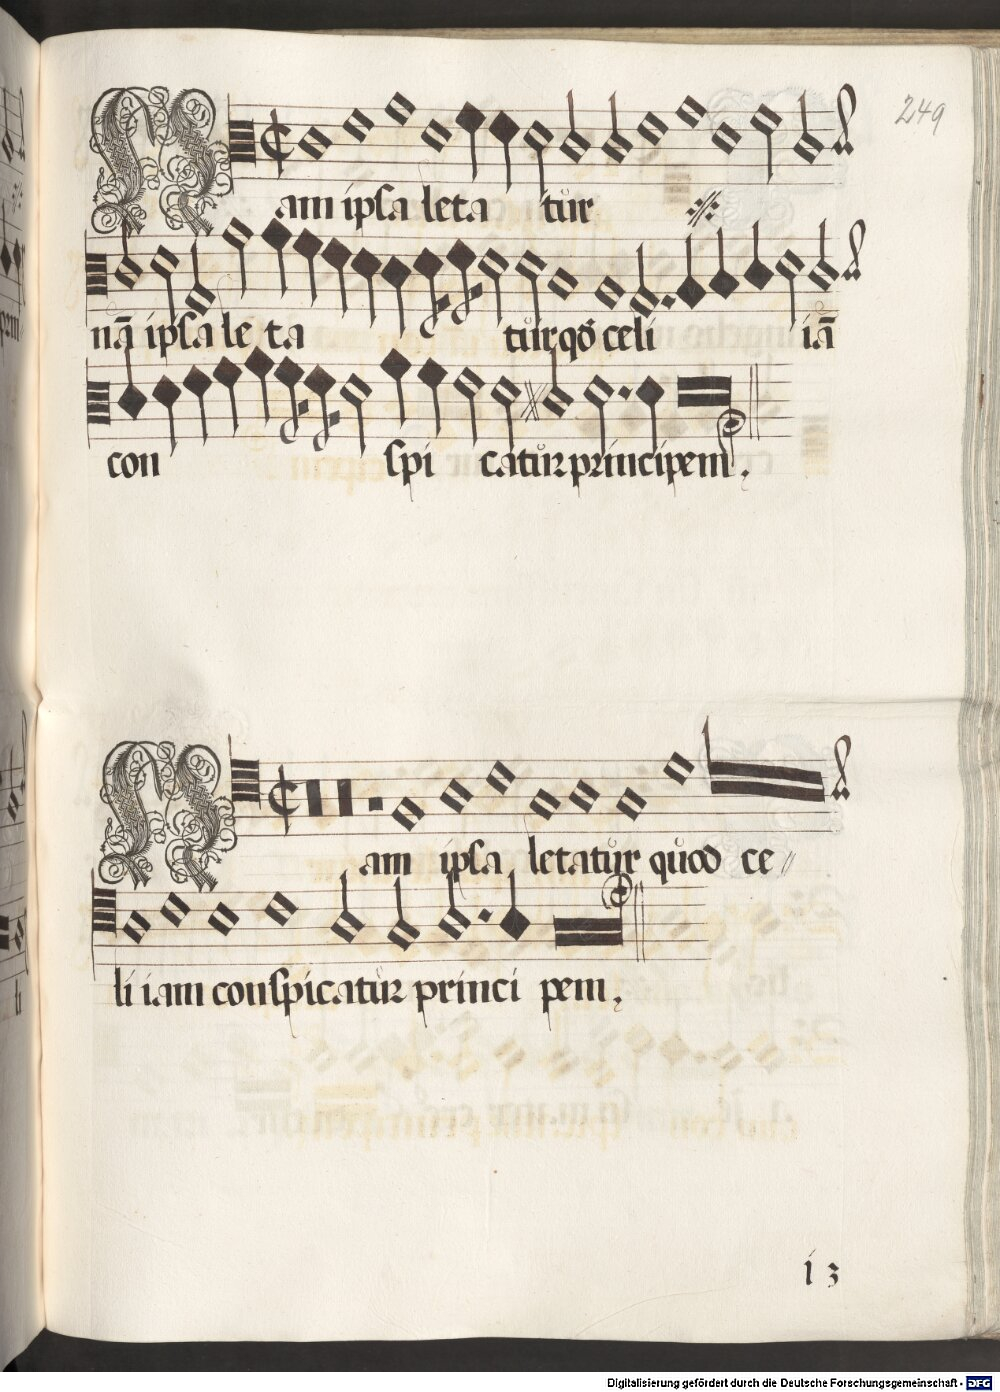 249
Nam ipsa leta tur
nā ipsa le ta tur qȯ celi iā
con spi catur principem.
Nam ipsa letatur quod ce〃
li iam conspicatur princi pem.
i 3
Digitalisierung gefördert durch die Deutsche Forschungsgemeinschaft - DFG